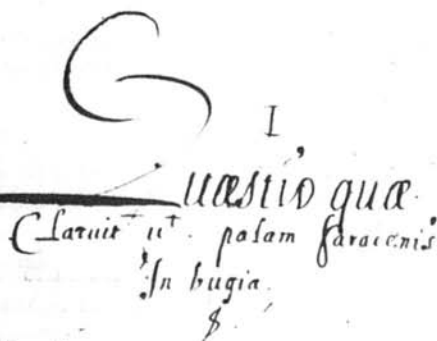 I
Quæstio quæ
Claruit ut. palam saracenis
In bugia.